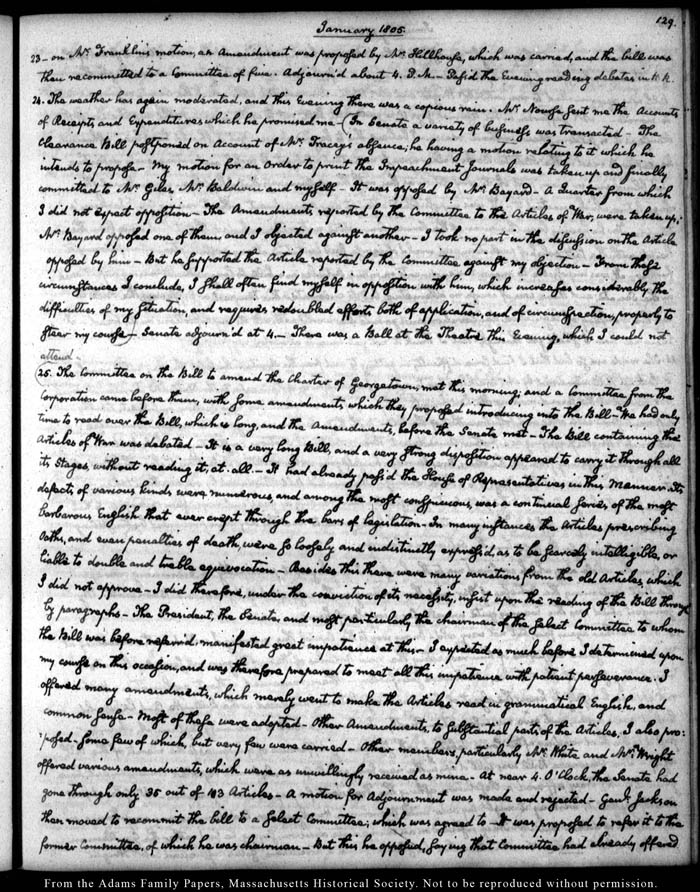 129.
January 1805.
23 – on Mr. Franklin's motion, an Amendment was proposed by Mr. Hillhouse, which was carried, and the bill was
then recommitted to a Committee of five. Adjourn'd about 4. P.M. – Pass'd the Evening reading debates in
24. The weather has again moderated, and this Evening there was a copious rain. Mr. Nourse sent me the Accounts
of Receipts and Expenditures which he promised me – (In Senate a variety of business was transacted – The
Clearance Bill postponed on Account of Mr. Tracey's absence; he having a motion relating to it which he
intends to propose – My motion for an Order to print the Impeachment Journals was taken up and finally
committed to Mr. Giles, Mr. Baldwin and myself – It was opposed by Mr. Bayard – A Quarter from which
I did not expect opposition – The Amendments reported by the Committee to the Articles of War, were taken up;
Mr. Bayard opposed one of them, and I objected against another – I took no part in the discussion on the Article
opposed by him – But he supported the Article reported by the Committee against my objection – From these
circumstances I conclude, I shall often find myself in opposition with him, which increases considerably the
difficulties of my situation, and requires redoubled efforts both of application, and of circumspection, properly to
steer my course –) Senate adjourn'd at 4. – There was a Ball at the Theatre this Evening, which I could not
attend.
(25. The Committee on the Bill to amend the Charter of Georgetown, met this morning, and a Committee from the
Corporation came before them, with some amendments which they proposed introducing into the Bill – We had only
time to read over the Bill, which is long, and the Amendments, before the Senate met – The Bill containing the
Articles of War was debated – It is a very long Bill, and a very strong disposition appeared to carry it through all
its stages, without reading it, at all. – It had already pass'd the House of Representatives in this manner. Its
defects of various kinds were numerous, and among the most conspicuous, was a continual series of the most
barbarous English that ever crept through the bars of legislation – In many instances the Articles prescribing
Oaths, and even penalties of death, were so loosely and indistinctly express'd, as to be scarcely intelligible, or
liable to double and treble equivocation – Besides this there were many variations from the old Articles, which
I did not approve – I did therefore, under the conviction of its necessity, insist upon the reading of the Bill through
by paragraphs – The President, the Senate, and most particularly the chairman of the select Committee to whom
the Bill was before referr'd, manifested great impatience at this – I expected as much before I determined upon
my course on this occasion, and was therefore prepared to meet all this impatience with patient perseverance. I
offered many amendments, which merely went to make the Articles read in grammatical English, and
common sense – Most of these were adopted – Other Amendments, to substantial parts of the Articles, I also pro:
:posed – Some few of which, but very few were carried – Other members, particularly Mr. White and Mr. Wright
offered various amendments, which were as unwillingly received as mine – At near 4. O'Clock, the Senate had
gone through only 35 out of 103 Articles – A motion for Adjournment was made and rejected – Genl. Jackson
then moved to recommit the bill to a select Committee; which was agreed to – It was proposed to refer it to the
former Committee, of which he was chairman – But this he opposed, saying that Committee had already offered
From the Adams Family Papers, Massachusetts Historical Society. Not to be reproduced without permission.